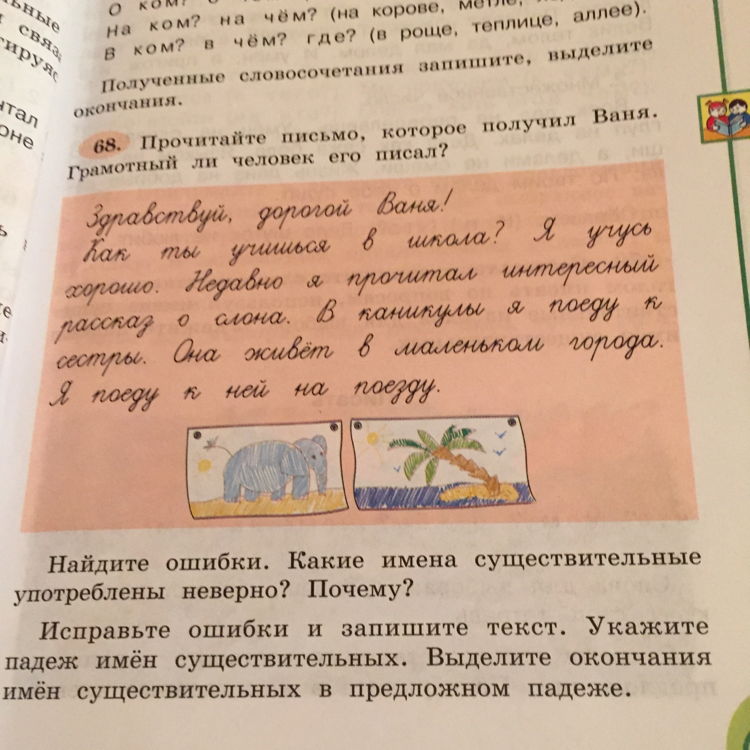 льные
связ
О ком?
тируяс
На ком? на чём? (на корове, метле,
В ком? в чём? где? (в роще, теплице, аллее).
Полученные словосочетания запишите, выделите
окончания.
68. Прочитайте письмо, которое получил Ваня.
Грамотный ли человек его писал?
Здравствуй, дорогой Ваня!
Как ты учишься в школа? Я учусь
хорошо. Недавно я прочитал интересный
рассказ о слона. В каникулы я поеду к
сестры. Она живёт в маленьком города.
Я поеду к ней на поезду.
Найдите ошибки. Какие имена существительные
употреблены неверно? Почему?
Исправьте ошибки и запишите текст. Укажите
падеж имён существительных. Выделите окончания
имён существительных в предложном падеже.